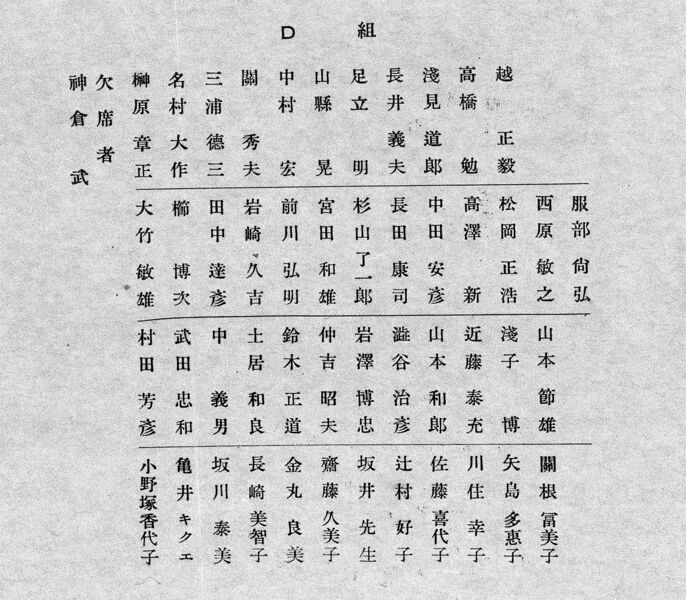 D 組
越 正毅
高橋 勉
淺見道郎
長井義夫
足立 明
山縣 晃
中村 宏
關 秀夫
三浦德三
名村大作
榊原章正
欠席者
神倉武
服部尙弘
西原敏之
松岡正浩
高澤 新
中田安彦
長田康司
杉山了一郎
宮田和雄
前川弘明
岩崎久吉
田中達彦
櫛 博次
大竹敏雄
山本節雄
淺子 博
近藤泰充
山本和郎
澁谷治彦
岩澤博忠
仲吉昭夫
鈴木正道
土居和良
中 義男
武田忠和
村田芳彦
關根冨美子
矢島多惠子
川住幸子
佐藤喜代子
辻村好子
坂井先生
齋藤久美子
金丸良美
長崎美智子
坂川泰美
亀井キクエ
小野塚香代子